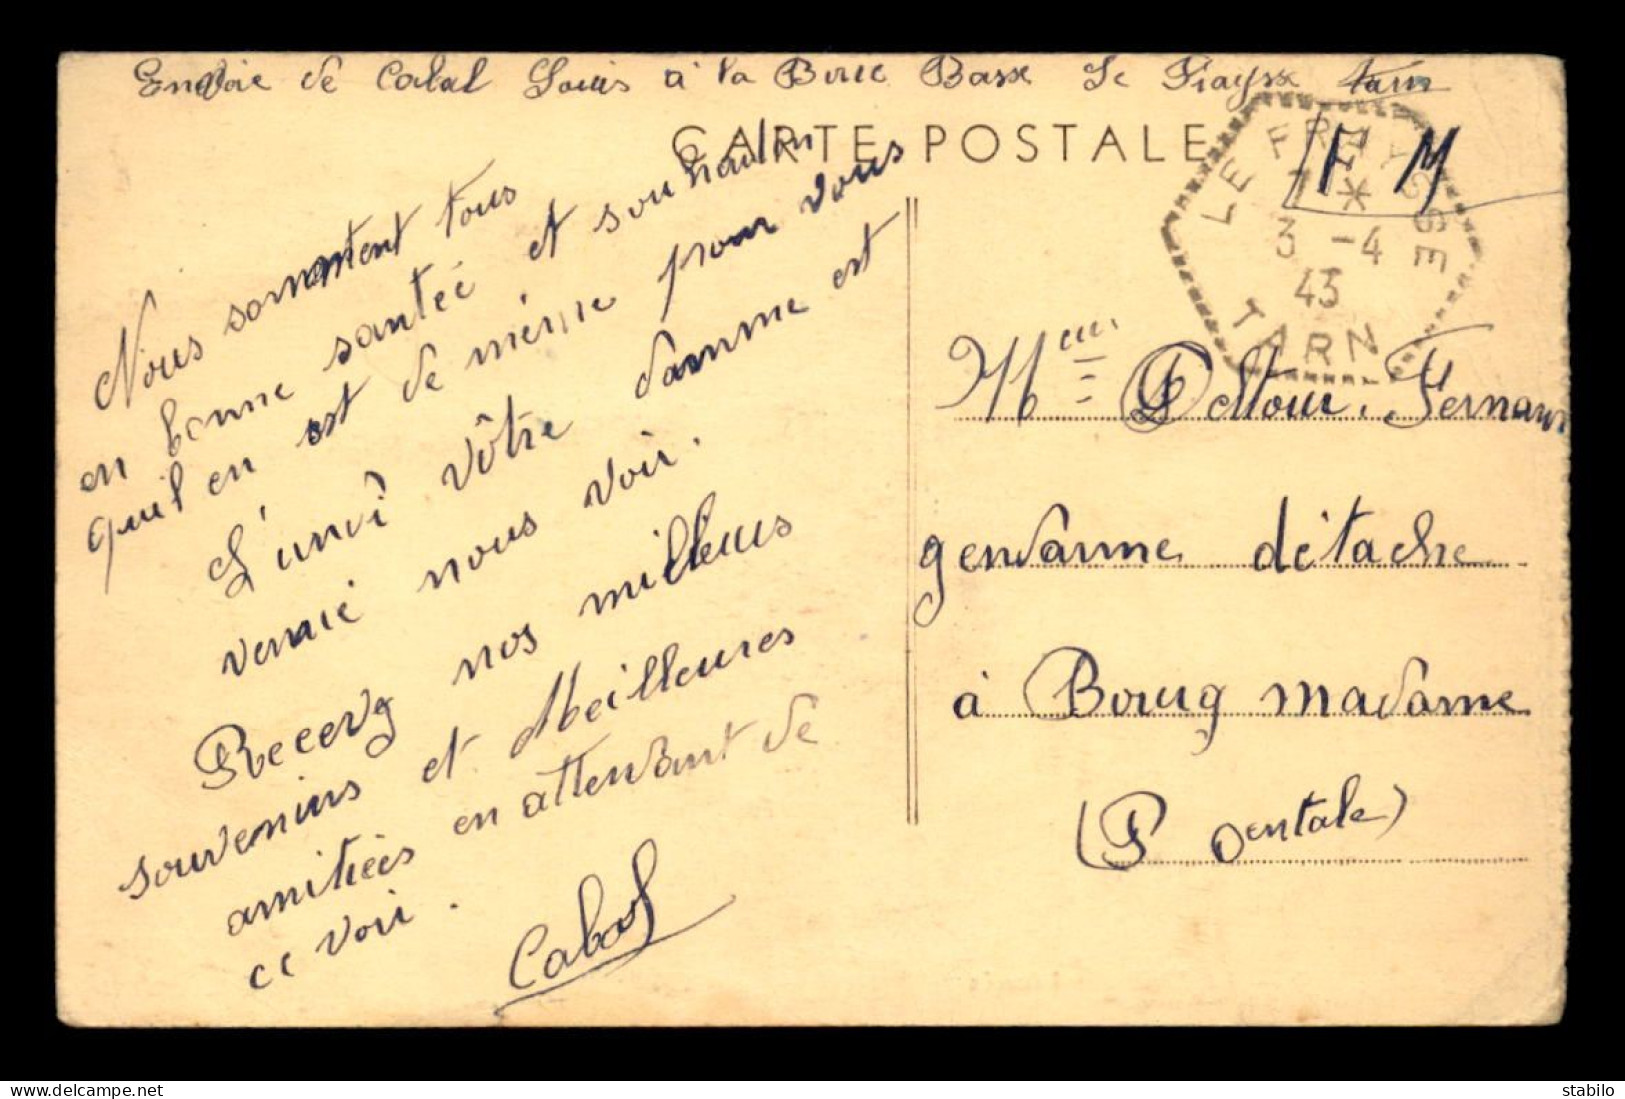 Envoie de Cabal Louis à la Borie Basse Le Fraysse Tarn
CARTE POSTALE
LE FRAYSSE
7 *
3 -4
43
TARN
F M
Nous sommtent tous
en bonne santée et souhaiton
quil en est de même pour vous
L'undi vôtre damme est
venuie nous voir.
Recevez nos milleus
souvenirs et Meilleures
amitiées en attendant de
ce voir.
Cabal
Deltour. Fernand
gendarme détache
à Boug madame
(P oentale)
delcampe.net
stabilo